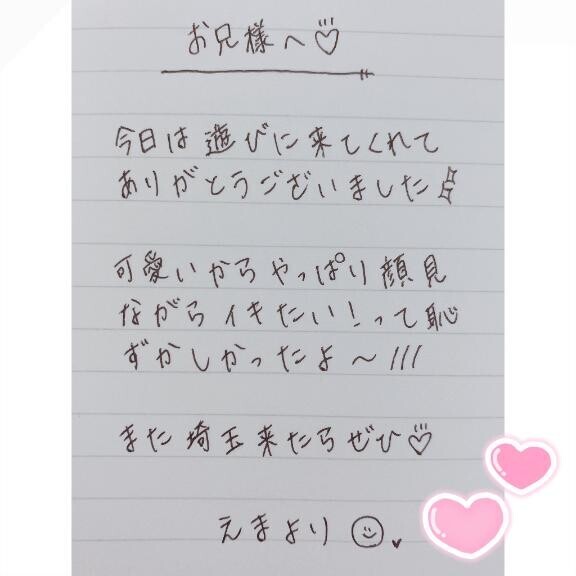 お兄様へ♡
今日は遊びに来てくれて
ありがとうございました
可愛いからやっぱり顔見
ながらイキたい!って恥
ずかしかったよ〜///
また埼玉来たらぜひ♡
えまより